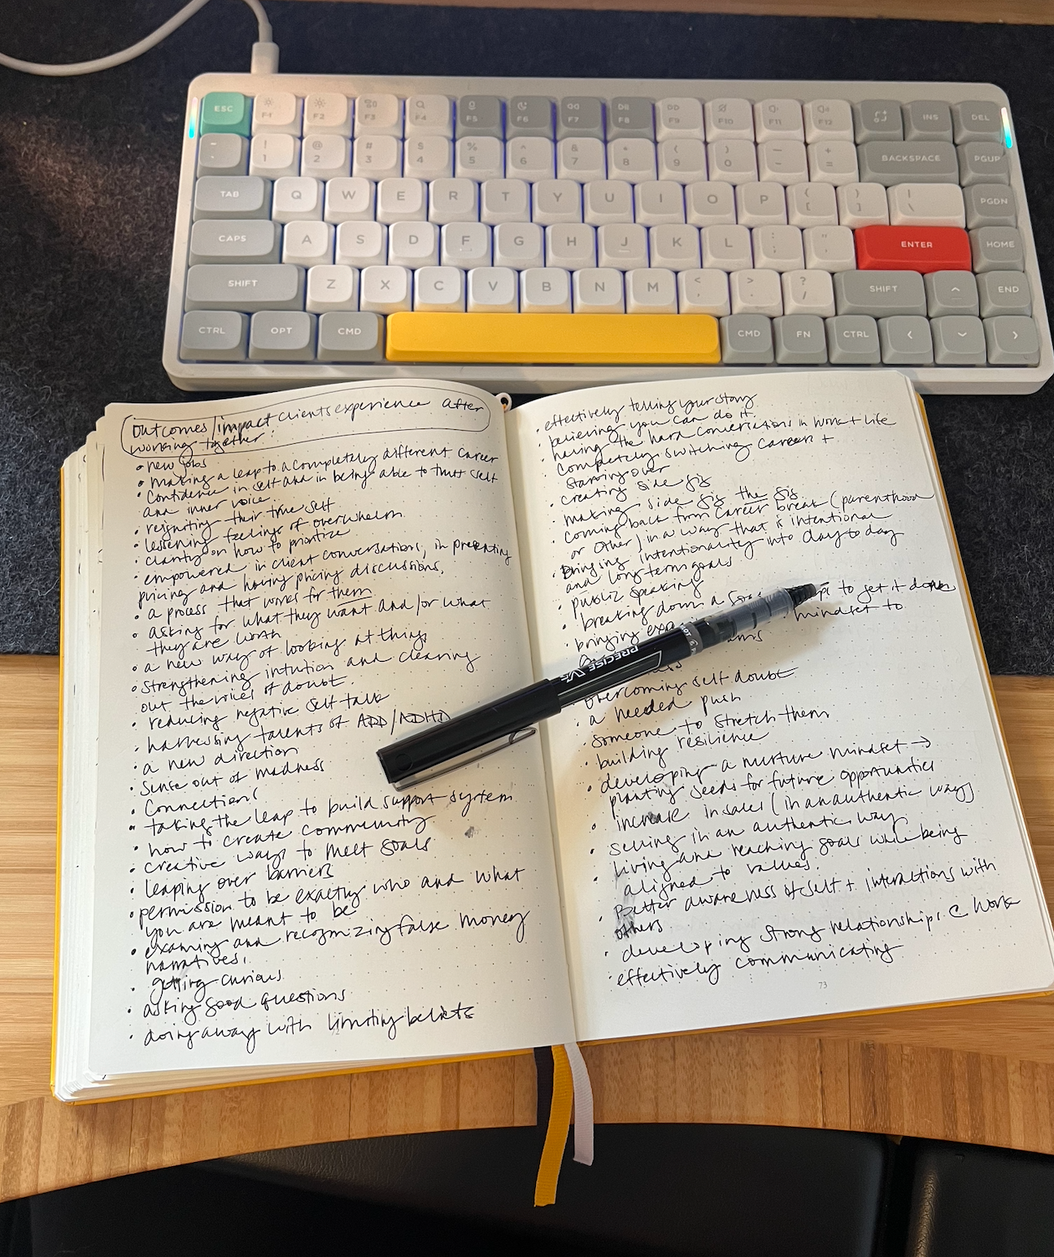 ESC F1 F2 F3 F4 F5 F6 F7 F8 F9 F10 F11 F12 INS DEL
~ ! 1 @ 2 # 3 $ 4 % 5 ^ 6 & 7 * 8 ( 9 ) 0 — - + = BACKSPACE PGUP
TAB Q W E R T Y U I O P { [ } ] | \ PGDN
CAPS A S D F G H J K L : ; " ' ENTER HOME
SHIFT Z X C V B N M < , > . ? / SHIFT END
CTRL OPT CMD CMD FN CTRL
Outcomes/impact clients experience after
working together:
• new jobs
• making a leap to a completely different career
• Confidence in self and in being able to trust self
and inner voice.
• reigniting their true self
• lessening feelings of overwhelm
• clarity on how to prioritize
• empowered in client conversations, in presenting
pricing and having pricing discussions.
• a process that works for them
• asking for what they want and/or what
they are worth
• a new way of looking at things
• Strengthening intution and clearing
out the voices of doubt.
• reducing negative self talk
• harnessing talents of ADD/ADHD
• a new direction
• Sense out of madness
• Connection!
• taking the leap to build support system
• how to create community
• creative ways to meet goals
• leaping over barriers
• permission to be exactly who and what
you are meant to be
• examing and recognizing false money
narratives.
• getting curious
• asking good questions
• doing away with limiting beliefs
• effectively telling your story
• believing you can do it.
• having the hard conversations in work + life
• Completely switching careers +
starting over
• creating side gig
• making side gig the gig
• coming back from career break (parenthood
or other) in a way that is intentional
• Bringing intentionality into day to day
and long term goals
• public speaking
• breaking down a to get it done
• bringing mindset to
• overcoming self doubt
• a needed push
• someone to stretch them
• building resilience
• developing a nurture mindset →
planting seeds for future opportunities
• increase in sales (in an authentic way)
• selling in an authentic way
• living and reaching goals while being
aligned to values.
• Better awareness of self + interactions with
others
• developing strong relationships @ work
• effectively communicating
73
PRECISE V5